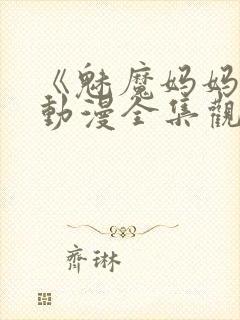 《魅魔妈妈
動漫全集觀
齊琳